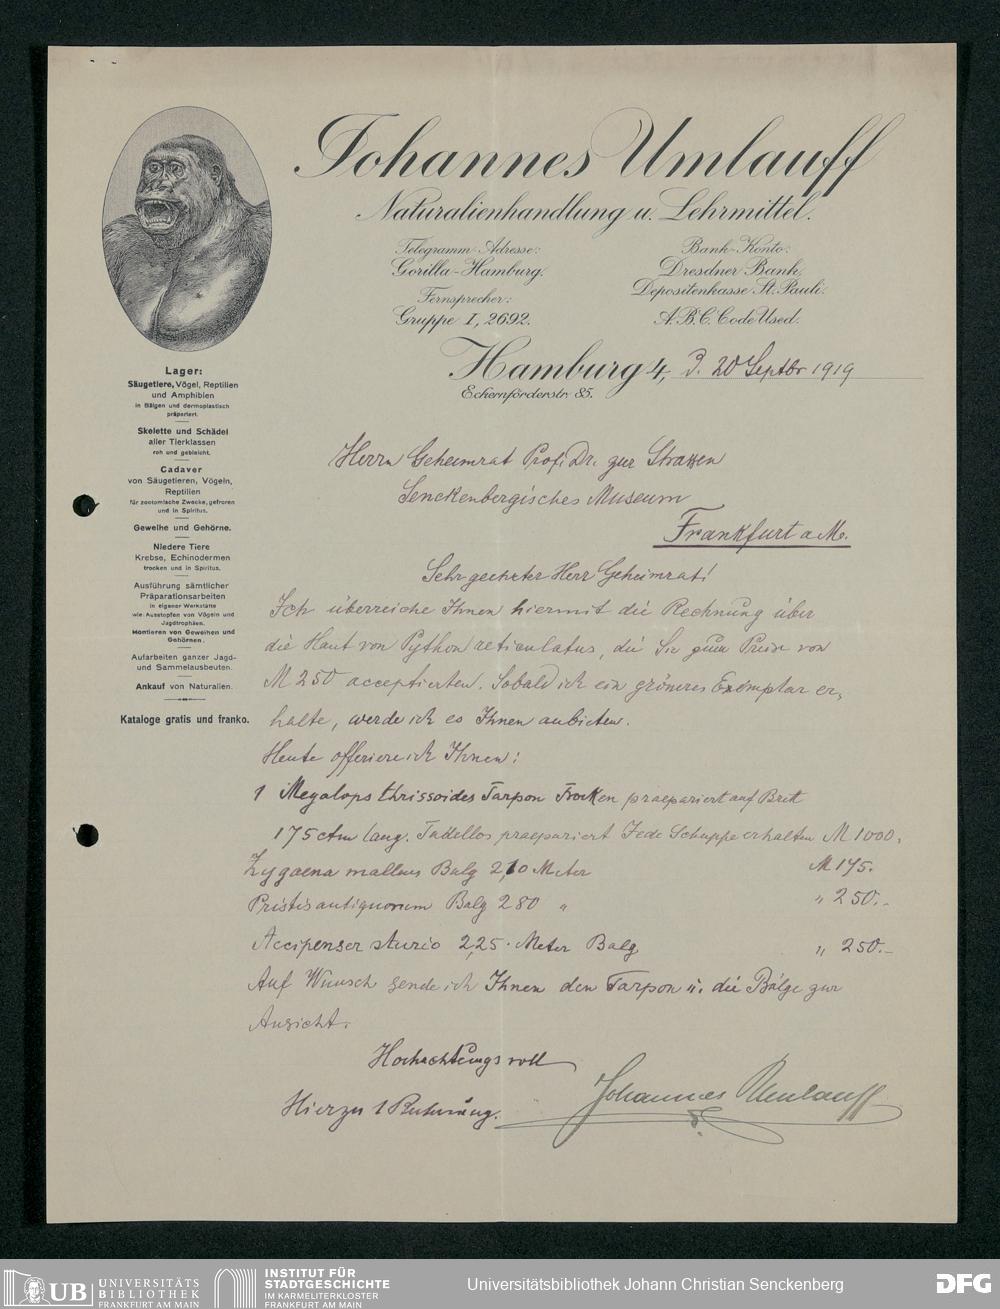 Johannes Umlauff
Naturalienhandlung u. Lehrmittel.
Telegramm-Adresse:
Gorilla-Hamburg.
Fernsprecher:
Gruppe I, 2692.
Bank-Konto:
Dresdner Bank,
Depositenkasse St. Pauli.
A.B.C. Code Used.
Hamburg 4, d. 20 Septbr 1919
Eckernförderstr. 85.
Lager:
Säugetiere, Vögel, Reptilien
und Amphibien
in Bälgen und dermoplastisch
präpariert.
Skelette und Schädel
aller Tierklassen
roh und gebleicht.
Cadaver
von Säugetieren, Vögeln,
Reptilien
für zootomische Zwecke, gefroren
und in Spiritus.
Geweihe und Gehörne.
Niedere Tiere
Krebse, Echinodermen
trocken und in Spiritus.
Ausführung sämtlicher
Präparationsarbeiten
in eigener Werkstätte
wie: Ausstopfen von Vögeln und
Jagdtrophäen.
Montieren von Geweihen und
Gehörnen.
Aufarbeiten ganzer Jagd-
und Sammelausbeuten.
Ankauf von Naturalien.
Kataloge gratis und franko.
Herrn Geheimrat Prof. Dr. zur Strassen
Senckenbergisches Museum
Frankfurt a M.
Sehr geehrter Herr Geheimrat!
Ich überreiche Ihnen hiermit die Rechnung über
die Haut von Python reticulatus, die Sie zum Preise von
M 250 acceptierten. Sobald ich ein grösseres Exemplar er-
halte, werde ich es Ihnen anbieten.
Heute offeriere ich Ihnen:
1 Megalops thrissoides Tarpon Trocken praepariert auf Brett
175 ctm lang. Tadellos praepariert Jede Schuppe erhalten M 1000.
Zygaena malleus Balg 2,10 Meter M 175.
Pristis antiquorum Balg 280 " " 250.-
Accipenser sturio 2,25 Meter Balg " 250.-
Auf Wunsch sende ich Ihnen den Tarpon u. die Bälge zur
Ansicht.
Hochachtungsvoll
Johannes Umlauff
Hierzu 1 Rechnung.
UB UNIVERSITÄTS
BIBLIOTHEK
FRANKFURT AM MAIN
INSTITUT FÜR
STADTGESCHICHTE
IM KARMELITERKLOSTER
FRANKFURT AM MAIN
Universitätsbibliothek Johann Christian Senckenberg
DFG